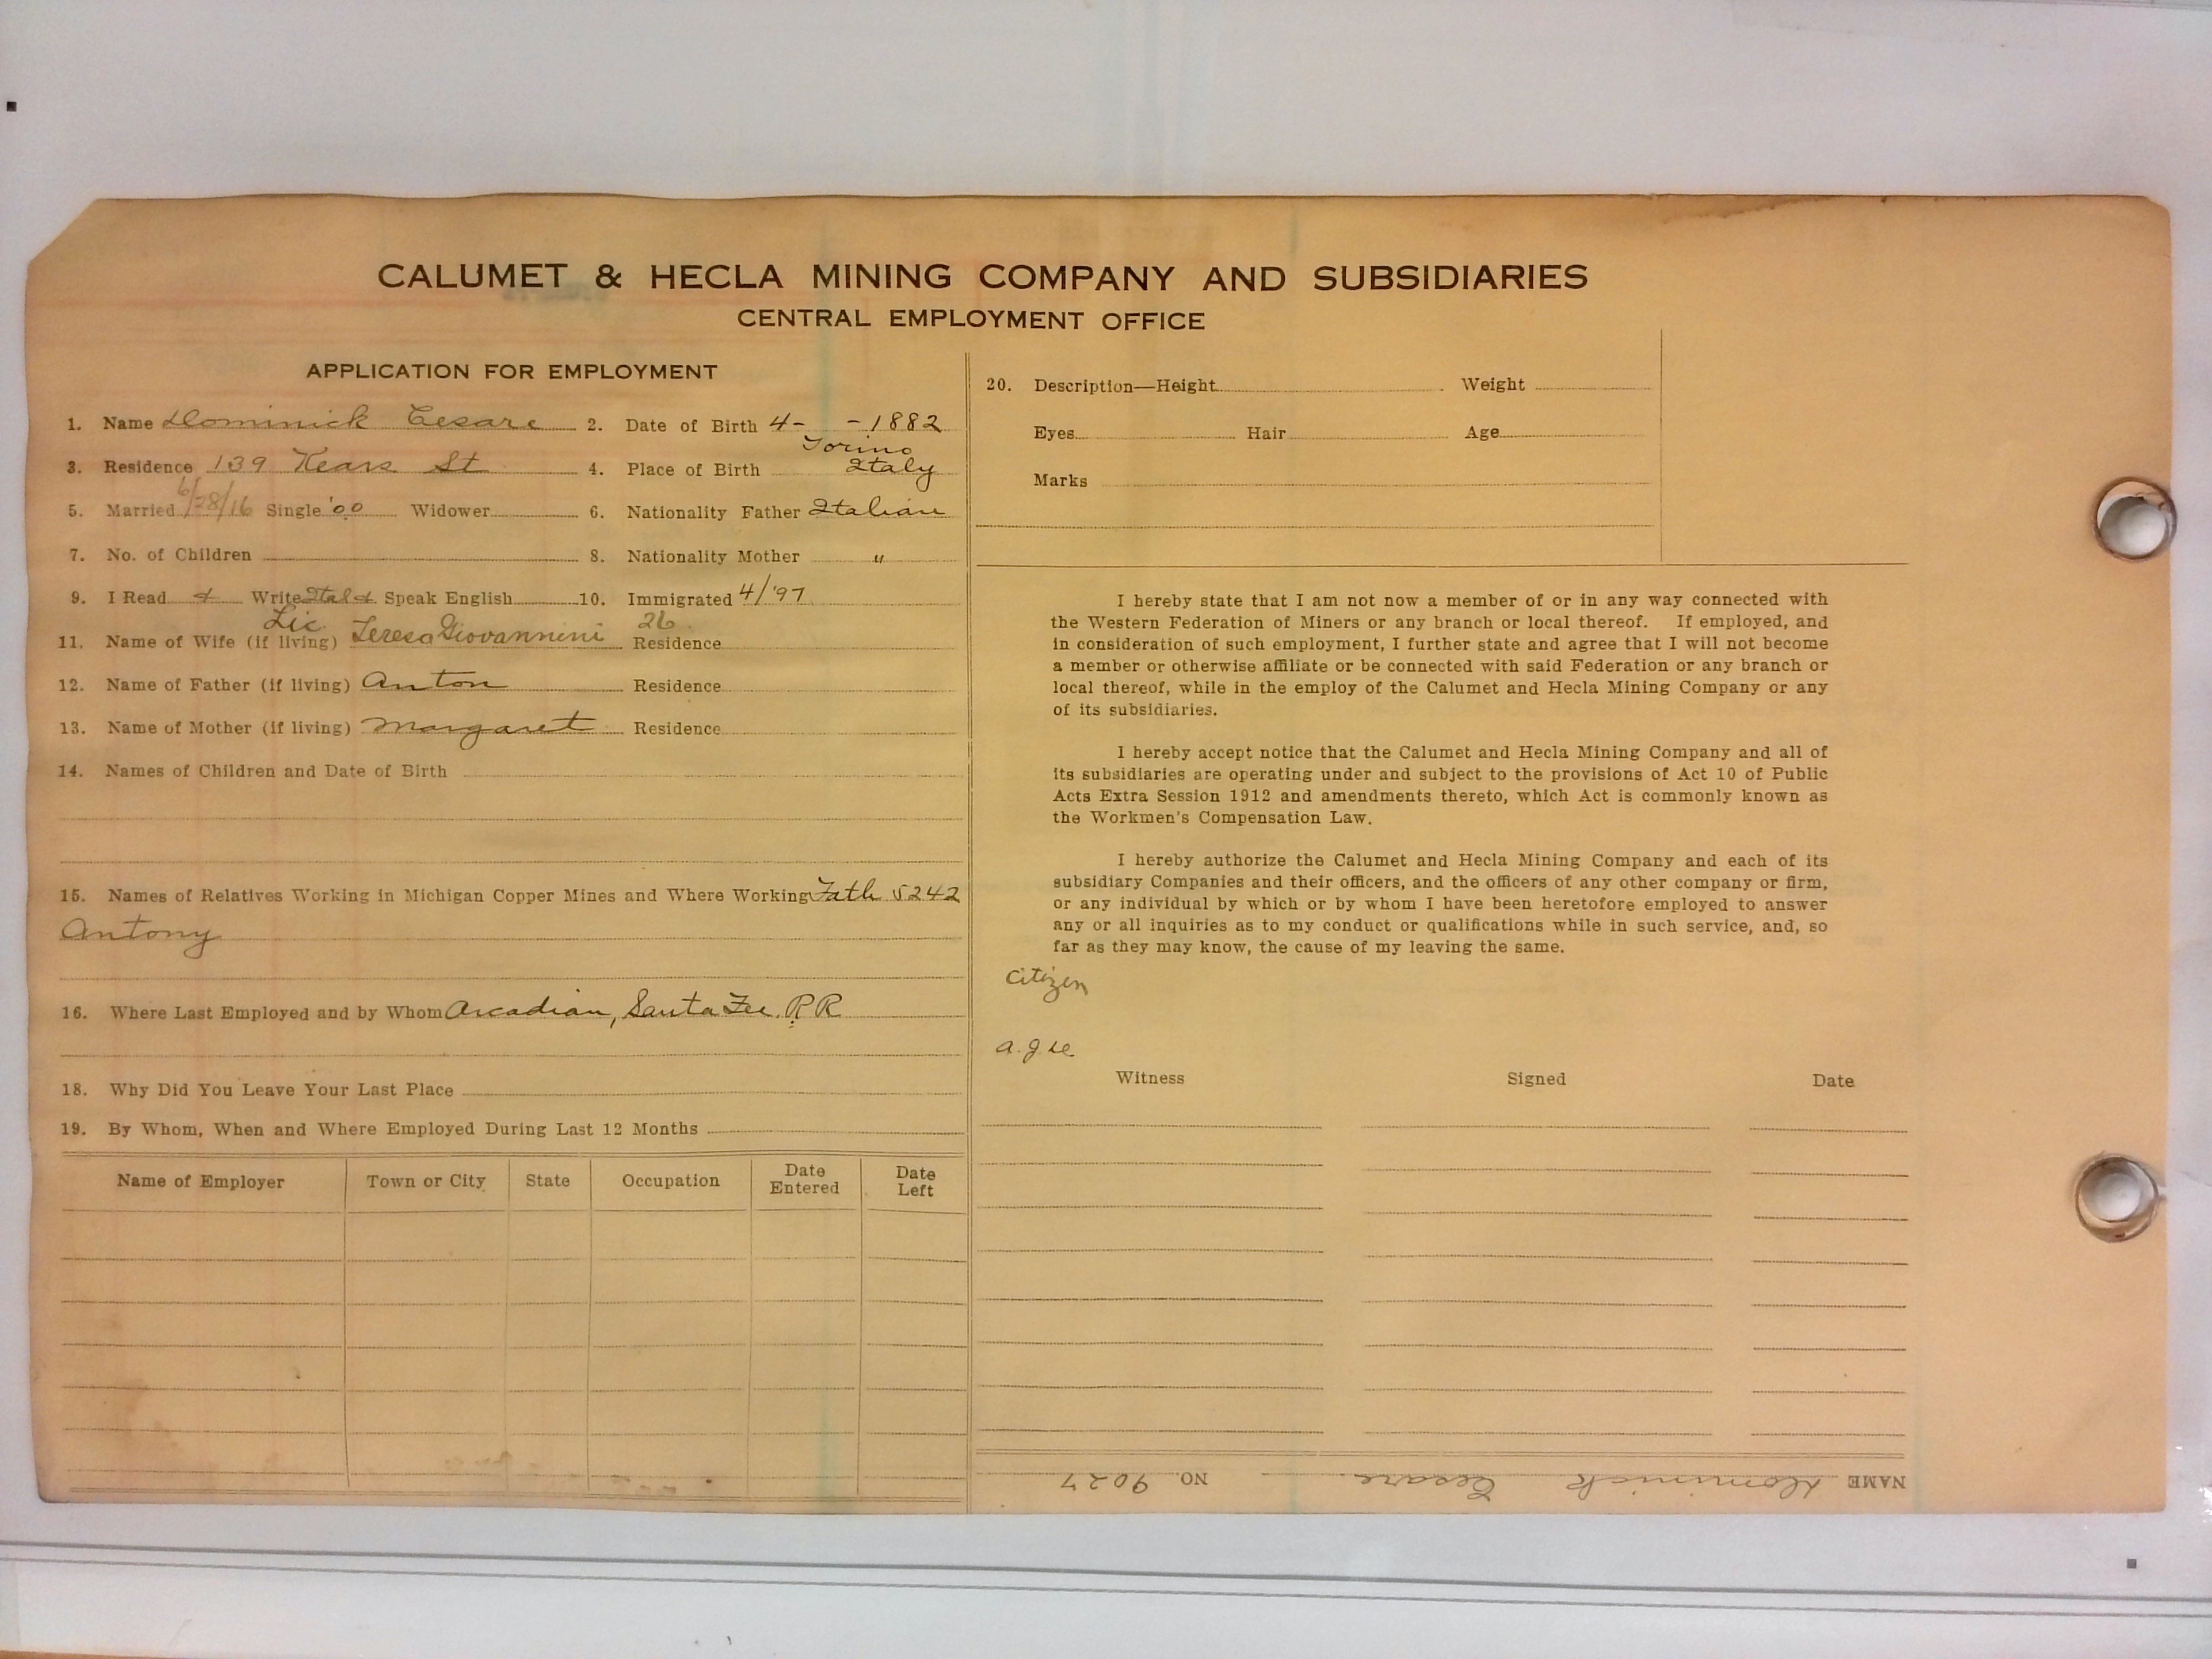 CALUMET & HECLA MINING COMPANY AND SUBSIDIARIES
CENTRAL EMPLOYMENT OFFICE
APPLICATION FOR EMPLOYMENT
1. Name Dominick Cesare 2. Date of Birth 4- -1882
Torino
3. Residence 139 Kears St 4. Place of Birth Italy
5. Married 6/28/16 Single '00 Widower 6. Nationality Father Italian
7. No. of Children 8. Nationality Mother "
9. I Read & Write Ital & Speak English 10. Immigrated 4/'97
Lic. 26
11. Name of Wife (if living) Teresa Giovannini Residence
12. Name of Father (if living) Anton Residence
13. Name of Mother (if living) Margaret Residence
14. Names of Children and Date of Birth
15. Names of Relatives Working in Michigan Copper Mines and Where Working Fath 5242
Antony
16. Where Last Employed and by Whom Arcadian, Santa Fee. R.R
18. Why Did You Leave Your Last Place
19. By Whom, When and Where Employed During Last 12 Months
Name of Employer Town or City State Occupation Date Entered Date Left
20. Description—Height Weight
Eyes Hair Age
Marks
I hereby state that I am not now a member of or in any way connected with
the Western Federation of Miners or any branch or local thereof. If employed, and
in consideration of such employment, I further state and agree that I will not become
a member or otherwise affiliate or be connected with said Federation or any branch or
local thereof, while in the employ of the Calumet and Hecla Mining Company or any
of its subsidiaries.
I hereby accept notice that the Calumet and Hecla Mining Company and all of
its subsidiaries are operating under and subject to the provisions of Act 10 of Public
Acts Extra Session 1912 and amendments thereto, which Act is commonly known as
the Workmen's Compensation Law.
I hereby authorize the Calumet and Hecla Mining Company and each of its
subsidiary Companies and their officers, and the officers of any other company or firm,
or any individual by which or by whom I have been heretofore employed to answer
any or all inquiries as to my conduct or qualifications while in such service, and, so
far as they may know, the cause of my leaving the same.
Citizen
Witness Signed Date
NAME Dominick Cesare. NO. 9027